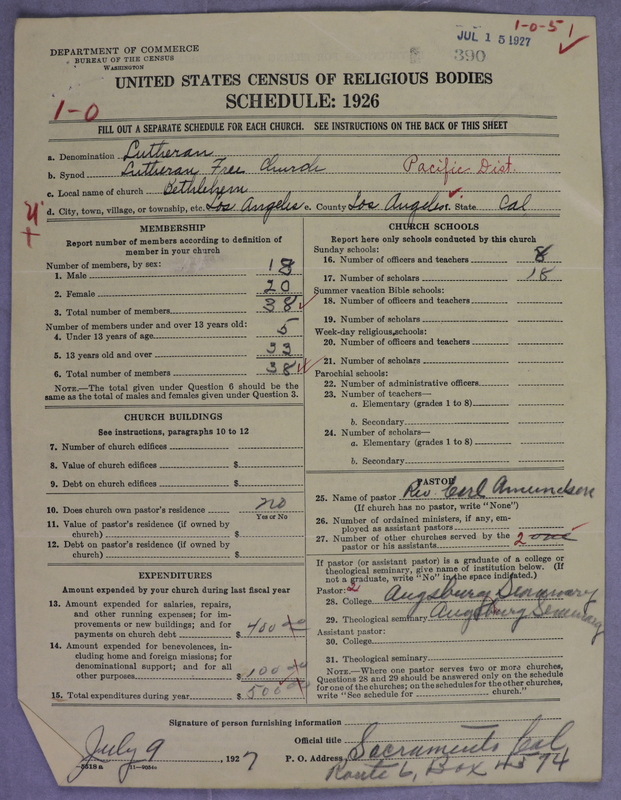 1-0-51
JUL 15 1927
390
DEPARTMENT OF COMMERCE
BUREAU OF THE CENSUS
WASHINGTON
UNITED STATES CENSUS OF RELIGIOUS BODIES
SCHEDULE: 1926
1-0
FILL OUT A SEPARATE SCHEDULE FOR EACH CHURCH. SEE INSTRUCTIONS ON THE BACK OF THIS SHEET
a. Denomination Lutheran
b. Synod Lutheran Free Church Pacific Dist.
c. Local name of church Bethlehem
d. City, town, village, or township, etc. Los Angeles e. County Los Angeles f. State Cal
MEMBERSHIP
Report number of members according to definition of
member in your church
Number of members, by sex:
1. Male 18
2. Female 20
3. Total number of members 38
Number of members under and over 13 years old:
4. Under 13 years of age 5
5. 13 years old and over 33
6. Total number of members 38
NOTE.—The total given under Question 6 should be the
same as the total of males and females given under Question 3.
CHURCH BUILDINGS
See instructions, paragraphs 10 to 12
7. Number of church edifices
8. Value of church edifices $
9. Debt on church edifices $
10. Does church own pastor's residence no
Yes or No
11. Value of pastor's residence (if owned by
church) $
12. Debt on pastor's residence (if owned by
church) $
EXPENDITURES
Amount expended by your church during last fiscal year
13. Amount expended for salaries, repairs,
and other running expenses; for im-
provements or new buildings; and for
payments on church debt $ 400 00
14. Amount expended for benevolences, in-
cluding home and foreign missions; for
denominational support; and for all
other purposes $ 100 00
15. Total expenditures during year $ 500 00
CHURCH SCHOOLS
Report here only schools conducted by this church
Sunday schools:
16. Number of officers and teachers 8
17. Number of scholars 18
Summer vacation Bible schools:
18. Number of officers and teachers
19. Number of scholars
Week-day religious schools:
20. Number of officers and teachers
21. Number of scholars
Parochial schools:
22. Number of administrative officers
23. Number of teachers—
a. Elementary (grades 1 to 8)
b. Secondary
24. Number of scholars—
a. Elementary (grades 1 to 8)
b. Secondary
PASTOR
25. Name of pastor Rev. Carl Amundsen
(If church has no pastor, write "None")
26. Number of ordained ministers, if any, em-
ployed as assistant pastors
27. Number of other churches served by the 2 one
pastor or his assistants
If pastor (or assistant pastor) is a graduate of a college or
theological seminary, give name of institution below. (If
not a graduate, write "No" in the space indicated.)
Pastor: 2
28. College Augsburg Seminary
29. Theological seminary Augsburg Seminary
Assistant pastor:
30. College
31. Theological seminary
NOTE.—Where one pastor serves two or more churches,
Questions 28 and 29 should be answered only on the schedule
for one of the churches; on the schedules for the other churches,
write "See schedule for church."
Signature of person furnishing information
Official title
July 9, 1927 P. O. Address Sacramento Cal
Route 6, Box 4574
8518a 11-9034a